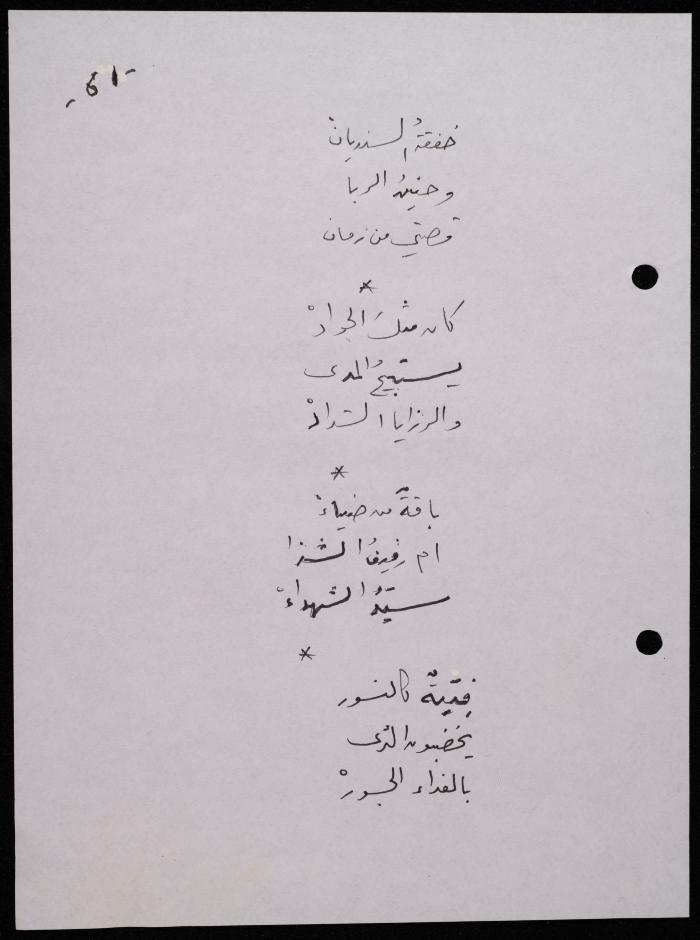 -٦١-
خفقةُ السنديانْ
وحنينُ الربا
قصتي من زمان
*
كان مثلَ الجوادْ
يستبيحُ المدى
والرزايا الشدادْ
*
باقةٌ من ضياءْ
ام رفيفُ الشذا
سيّدُ الشهداءْ
*
فِتيَةٌ كالنسور
يخضبون الثرى
بالفداء الجسورْ